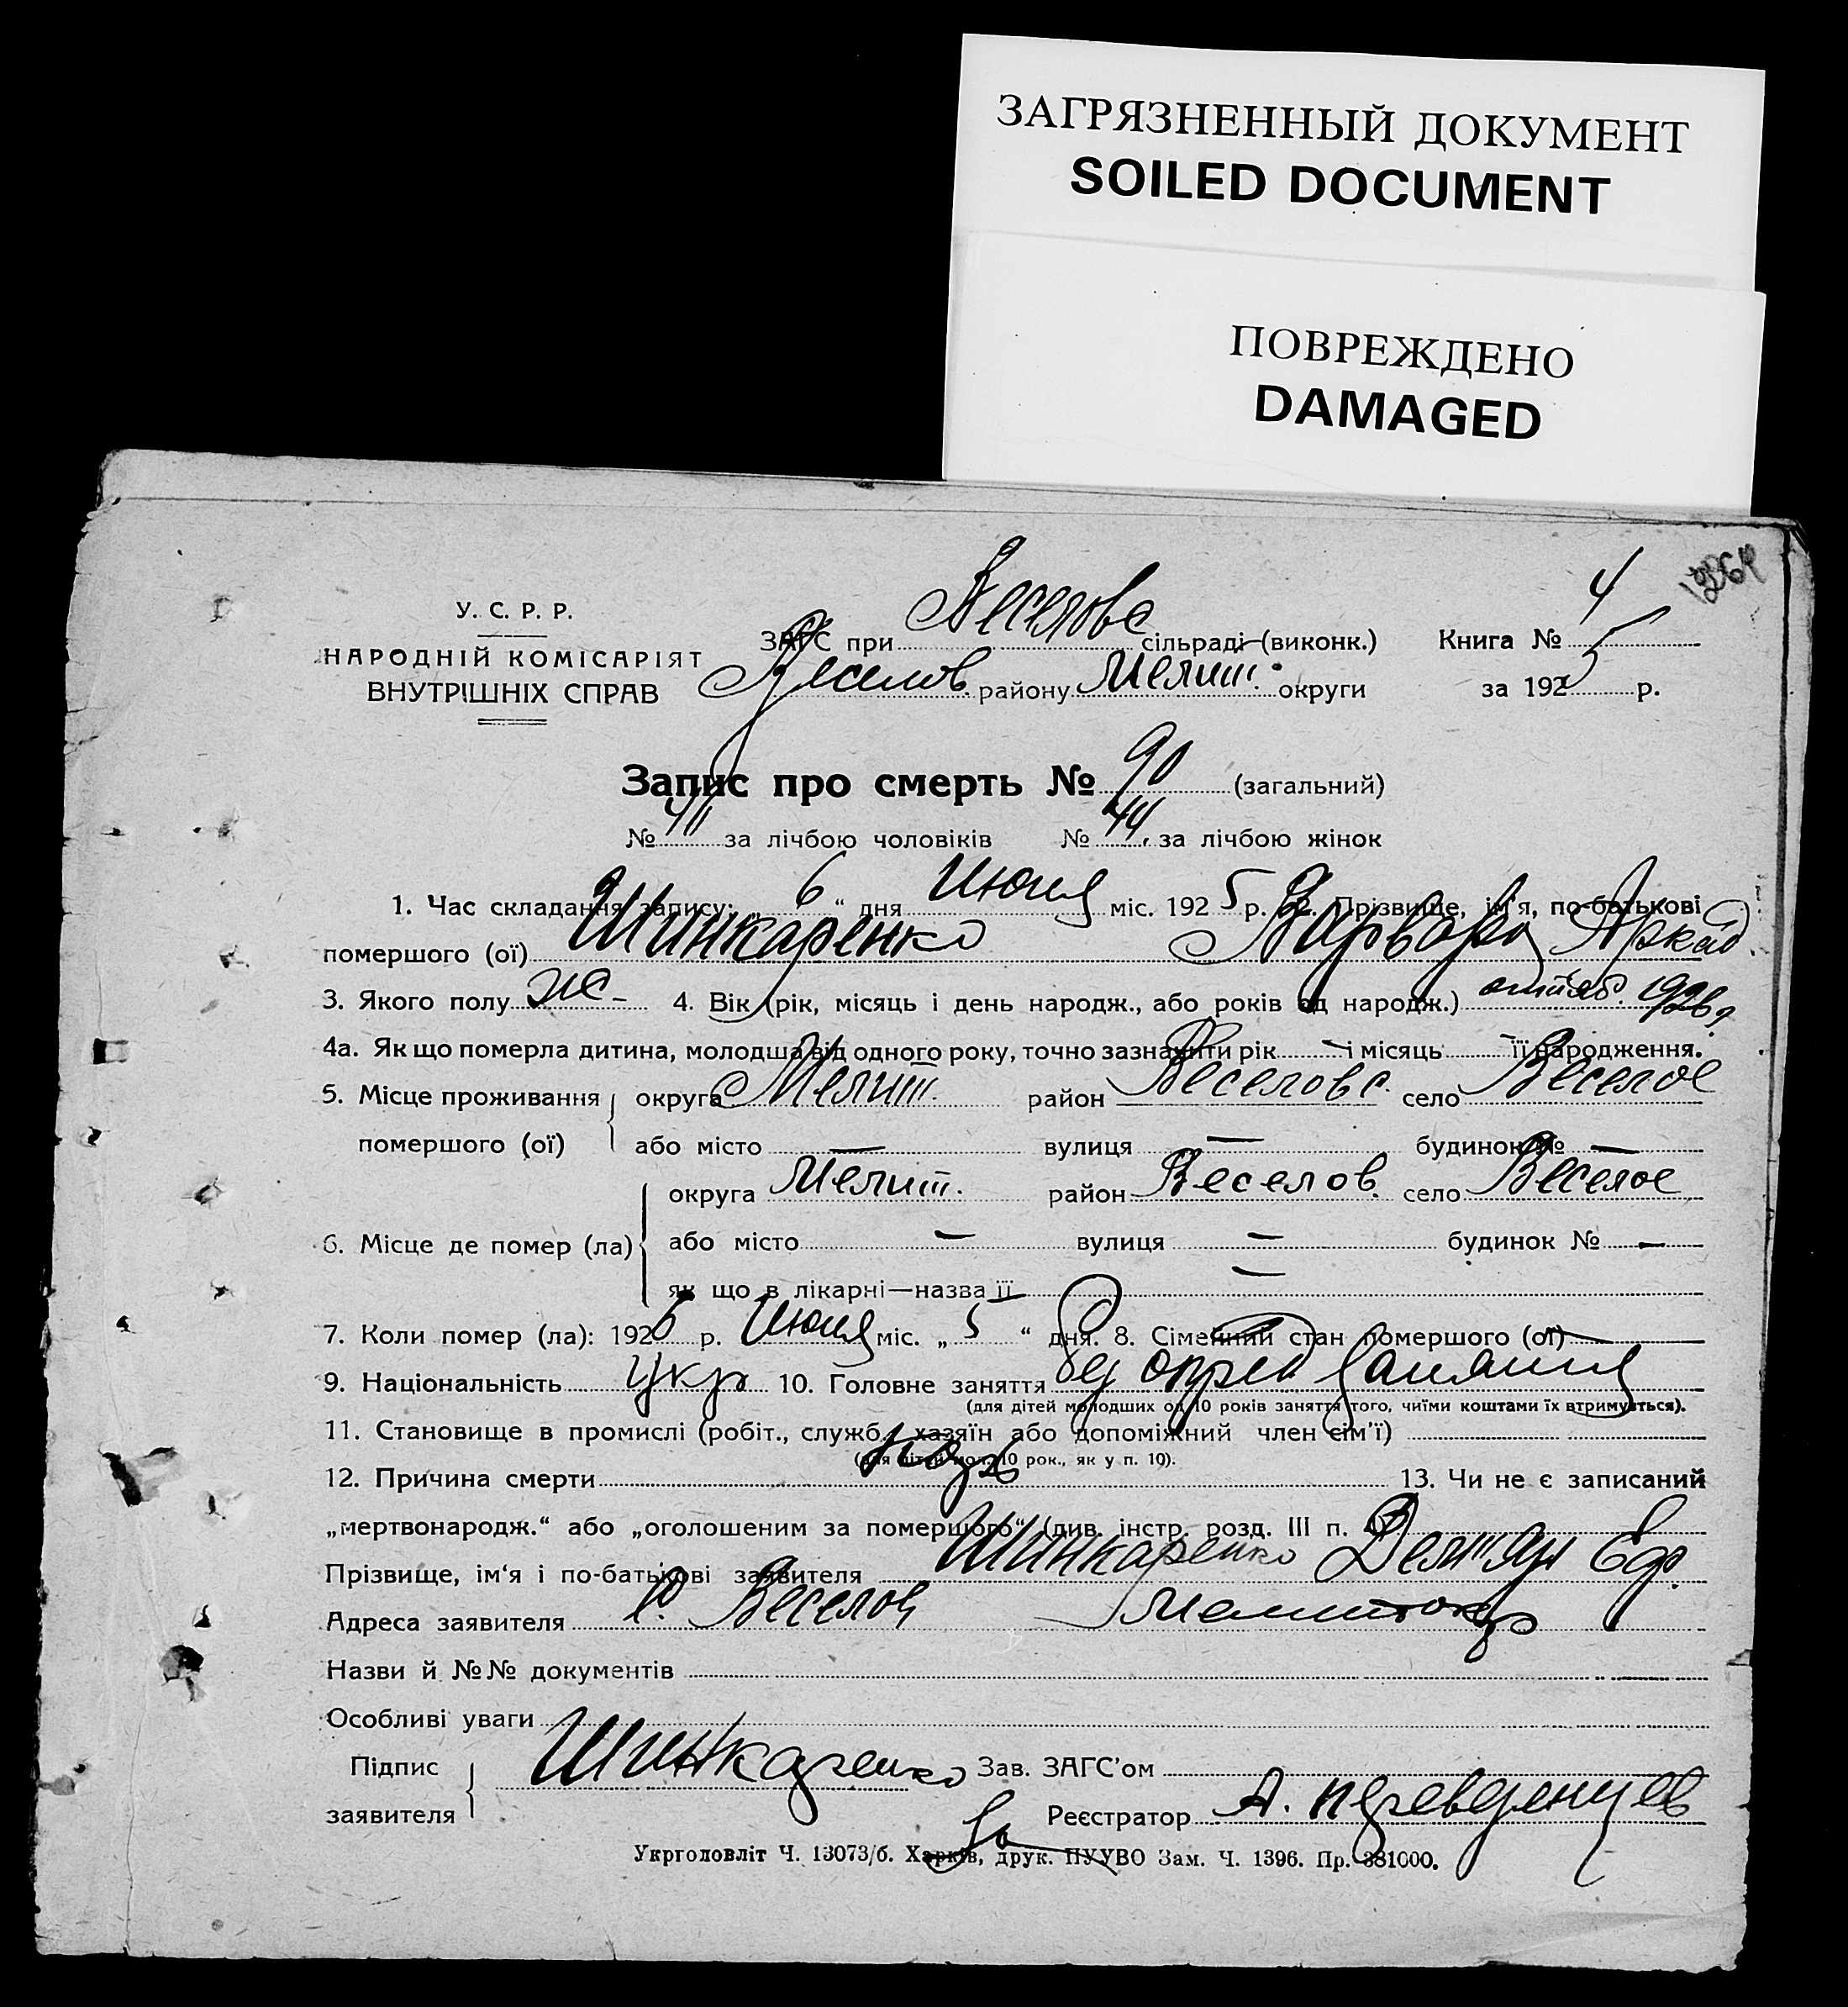 ЗАГРЯЗНЕННЫЙ ДОКУМЕНТ
SOILED DOCUMENT
ПОВРЕЖДЕНО
DAMAGED
У. С. Р. Р.
НАРОДНІЙ КОМІСАРІЯТ
ВНУТРІШНІХ СПРАВ
ЗАГС при Веселовс сільраді (виконк.) Книга № 4
Веселов району Мелит. округи за 1925 р.
Запис про смерть № 90 (загальний)
№ за лічбою чоловіків № 44 за лічбою жінок
1. Час складання запису: „ 6 “ дня Июня міс. 1925 р. 2. Прізвище, ім'я, по-батькові
помершого (ої) Шинкаренко Варвара Аркад
3. Якого полу жс- 4. Вік (рік, місяць і день народж., або років од народж.) 1926 г.
4а. Як що померла дитина, молодша від одного року, точно зазначити рік — і місяць її народження.
5. Місце проживання округа Мелит. район Веселовс. село Веселое
помершого (ої) або місто — вулиця — будинок № —
округа Мелит. район Веселов. село Веселое
6. Місце де помер (ла) або місто — вулиця — будинок № —
як що в лікарні—назва її —
7. Коли помер (ла): 1926 р. Июня міс. „ 5 “ дня. 8. Сімейний стан помершого (ої) —
9. Національність укр 10. Головне заняття без опред занятия
(для дітей молодших од 10 років заняття того, чиїми коштами їх втримується).
11. Становище в промислі (робіт., служб., хазяїн або допоміжний член сім'ї)
(для дітей мол. 10 рок., як у п. 10).
12. Причина смерти 13. Чи не є записаний
„мертвонародж.“ або „оголошеним за помершого“ (див. інстр. розд. III п. 4)
Прізвище, ім'я і по-батькові заявителя Шинкаренко Демян Ефр.
Адреса заявителя С. Веселое Мелиток
Назви й №№ документів
Особливі уваги
Підпис Шинкаренко Зав. ЗАГС'ом
заявителя Реєстратор А. Переверзенцев
Укрголовліт Ч. 13073/б. Харків, друк. ПУУВО Зам. Ч. 1396. Пр. 381000.